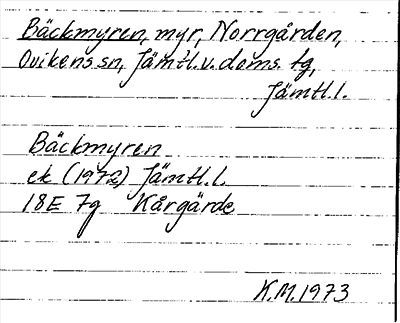 Bäckmyren, myr, Norrgården,
Ovikens sn, Jämtl.v.doms. tg,
Jämtl.l.
Bäckmyren
ek (1972) Jämtl.l.
18E 7g Kårgärde
K.M.1973